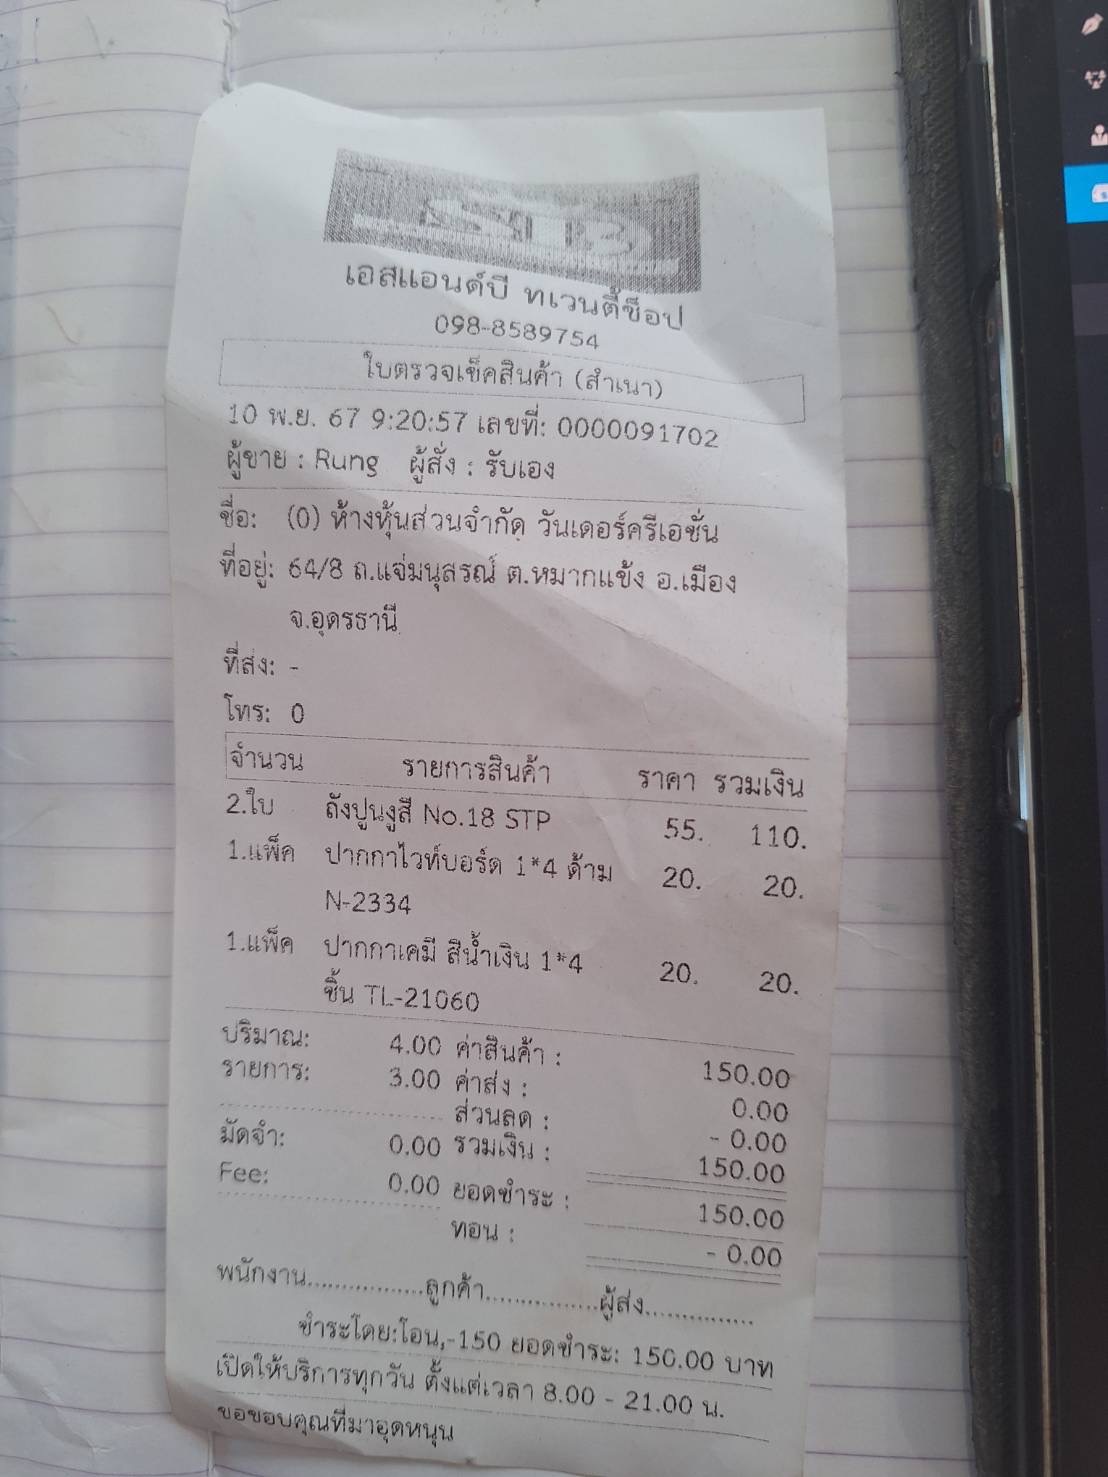 S&B
เอสแอนด์บี ทเวนตี้ช็อป
098-8589754
ใบตรวจเช็คสินค้า (สำเนา)
10 พ.ย. 67 9:20:57 เลขที่: 0000091702
ผู้ขาย : Rung ผู้สั่ง : รับเอง
ชื่อ: (0) ห้างหุ้นส่วนจำกัด วันเดอร์ครีเอชั่น
ที่อยู่: 64/8 ถ.แจ่มนุสรณ์ ต.หมากแข้ง อ.เมือง
จ.อุดรธานี
ที่ส่ง: -
โทร: 0
จำนวน รายการสินค้า ราคา รวมเงิน
2.ใบ ถังปูนงูสี No.18 STP 55. 110.
1.แพ็ค ปากกาไวท์บอร์ด 1*4 ด้าม 20. 20.
N-2334
1.แพ็ค ปากกาเคมี สีน้ำเงิน 1*4 20. 20.
ชิ้น TL-21060
ปริมาณ: 4.00 ค่าสินค้า : 150.00
รายการ: 3.00 ค่าส่ง : 0.00
ส่วนลด : - 0.00
มัดจำ: 0.00 รวมเงิน : 150.00
Fee: 0.00 ยอดชำระ : 150.00
ทอน : - 0.00
พนักงาน...............ลูกค้า...............ผู้ส่ง...............
ชำระโดย:โอน,-150 ยอดชำระ: 150.00 บาท
เปิดให้บริการทุกวัน ตั้งแต่เวลา 8.00 - 21.00 น.
ขอขอบคุณที่มาอุดหนุน